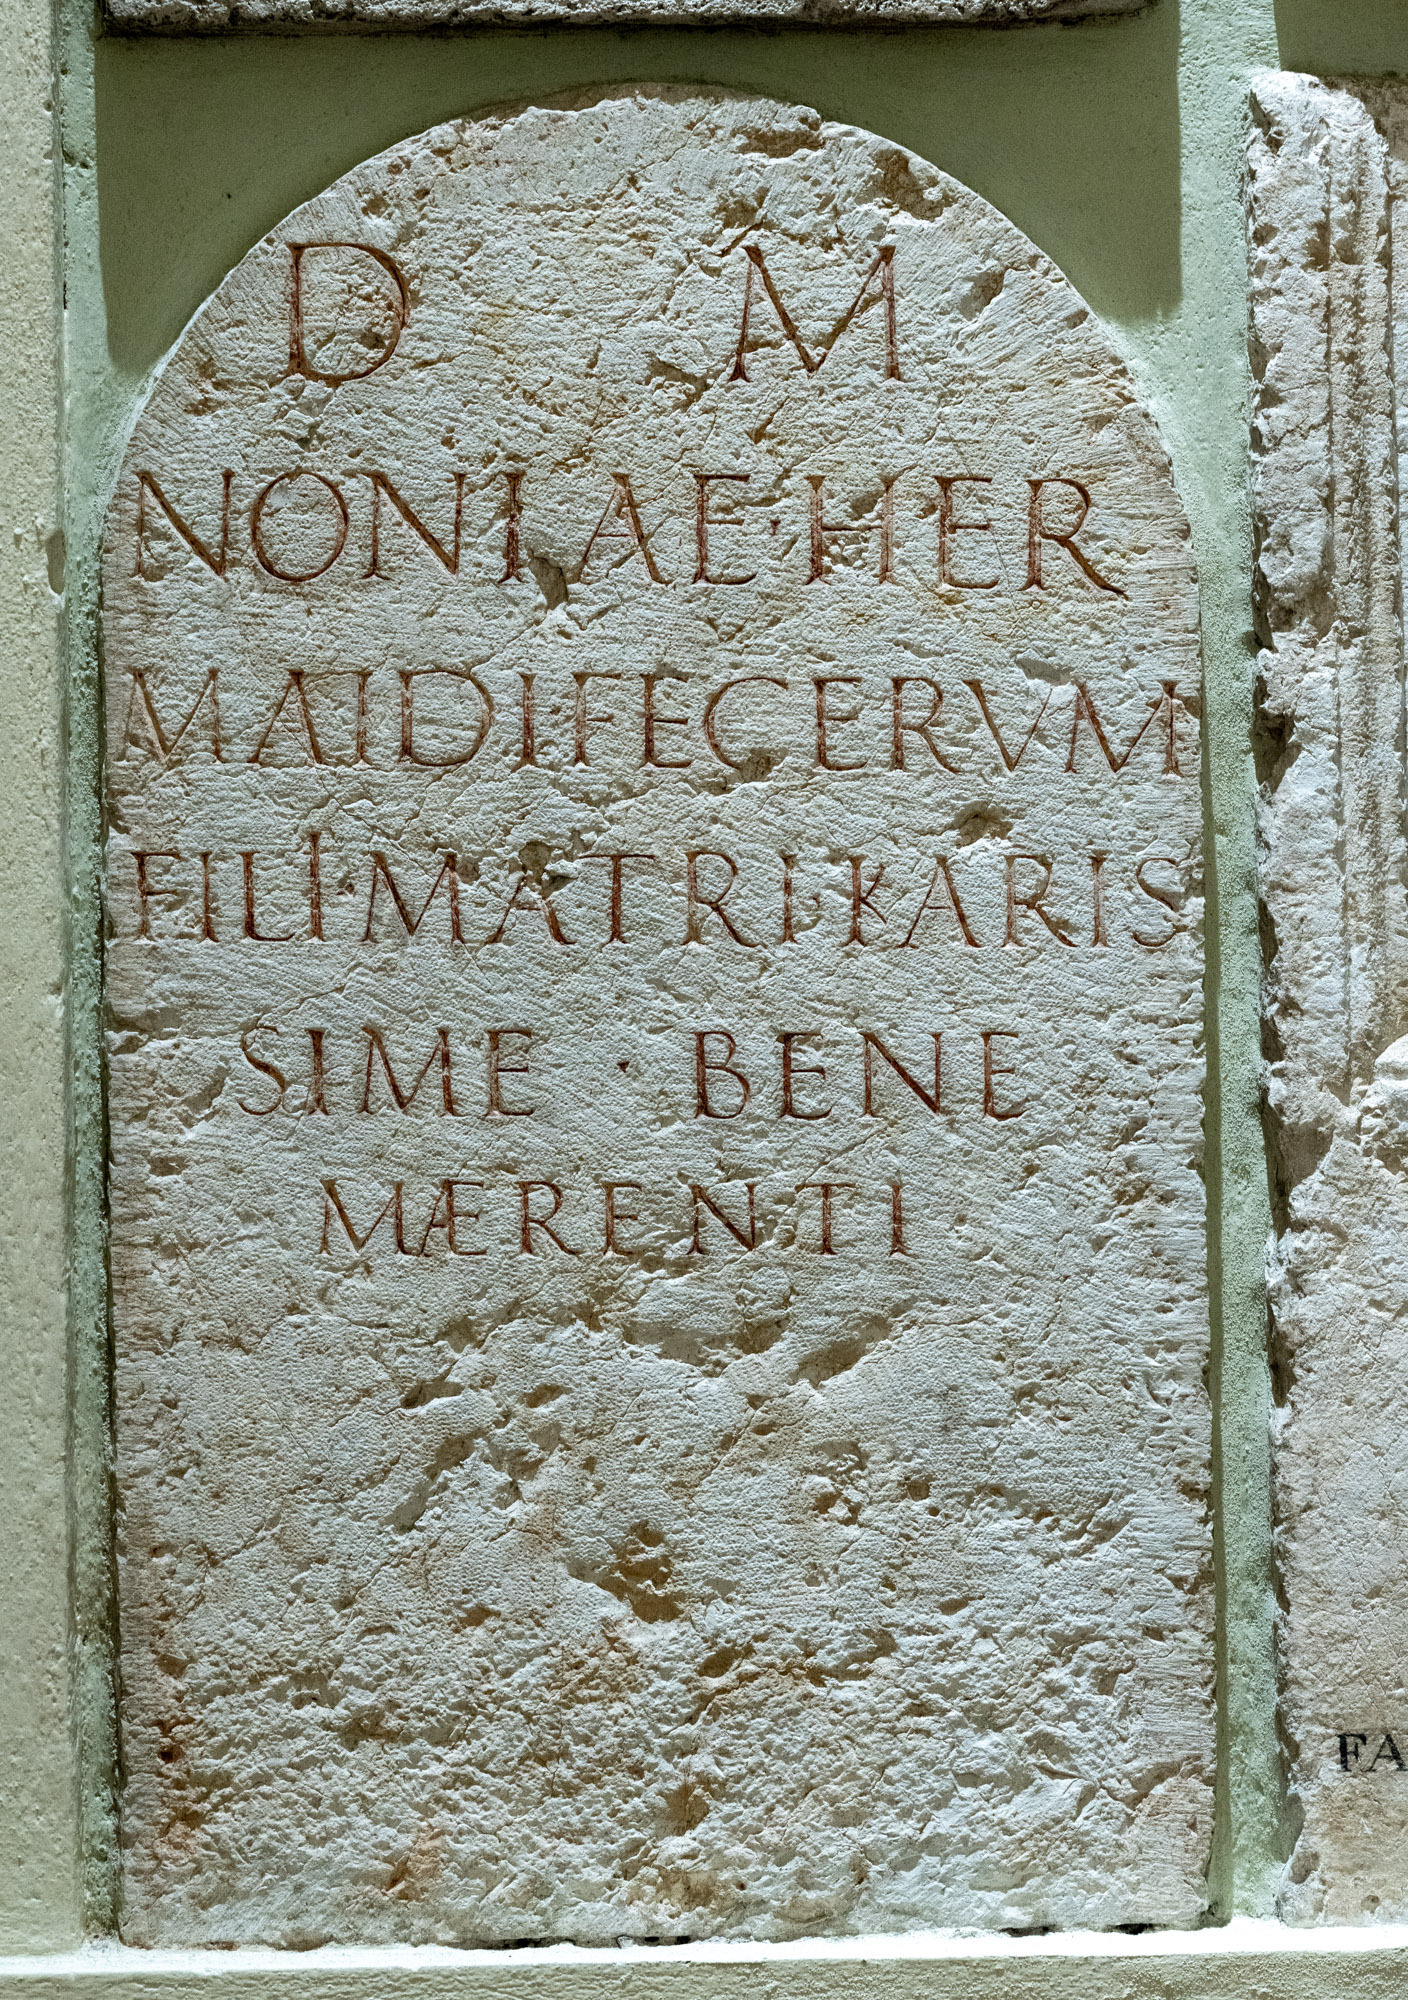 D M
NONIAE·HER
MAIDIFECERVM
FILI·MATRI·KARIS
SIME · BENE
MÆRENTI
FA